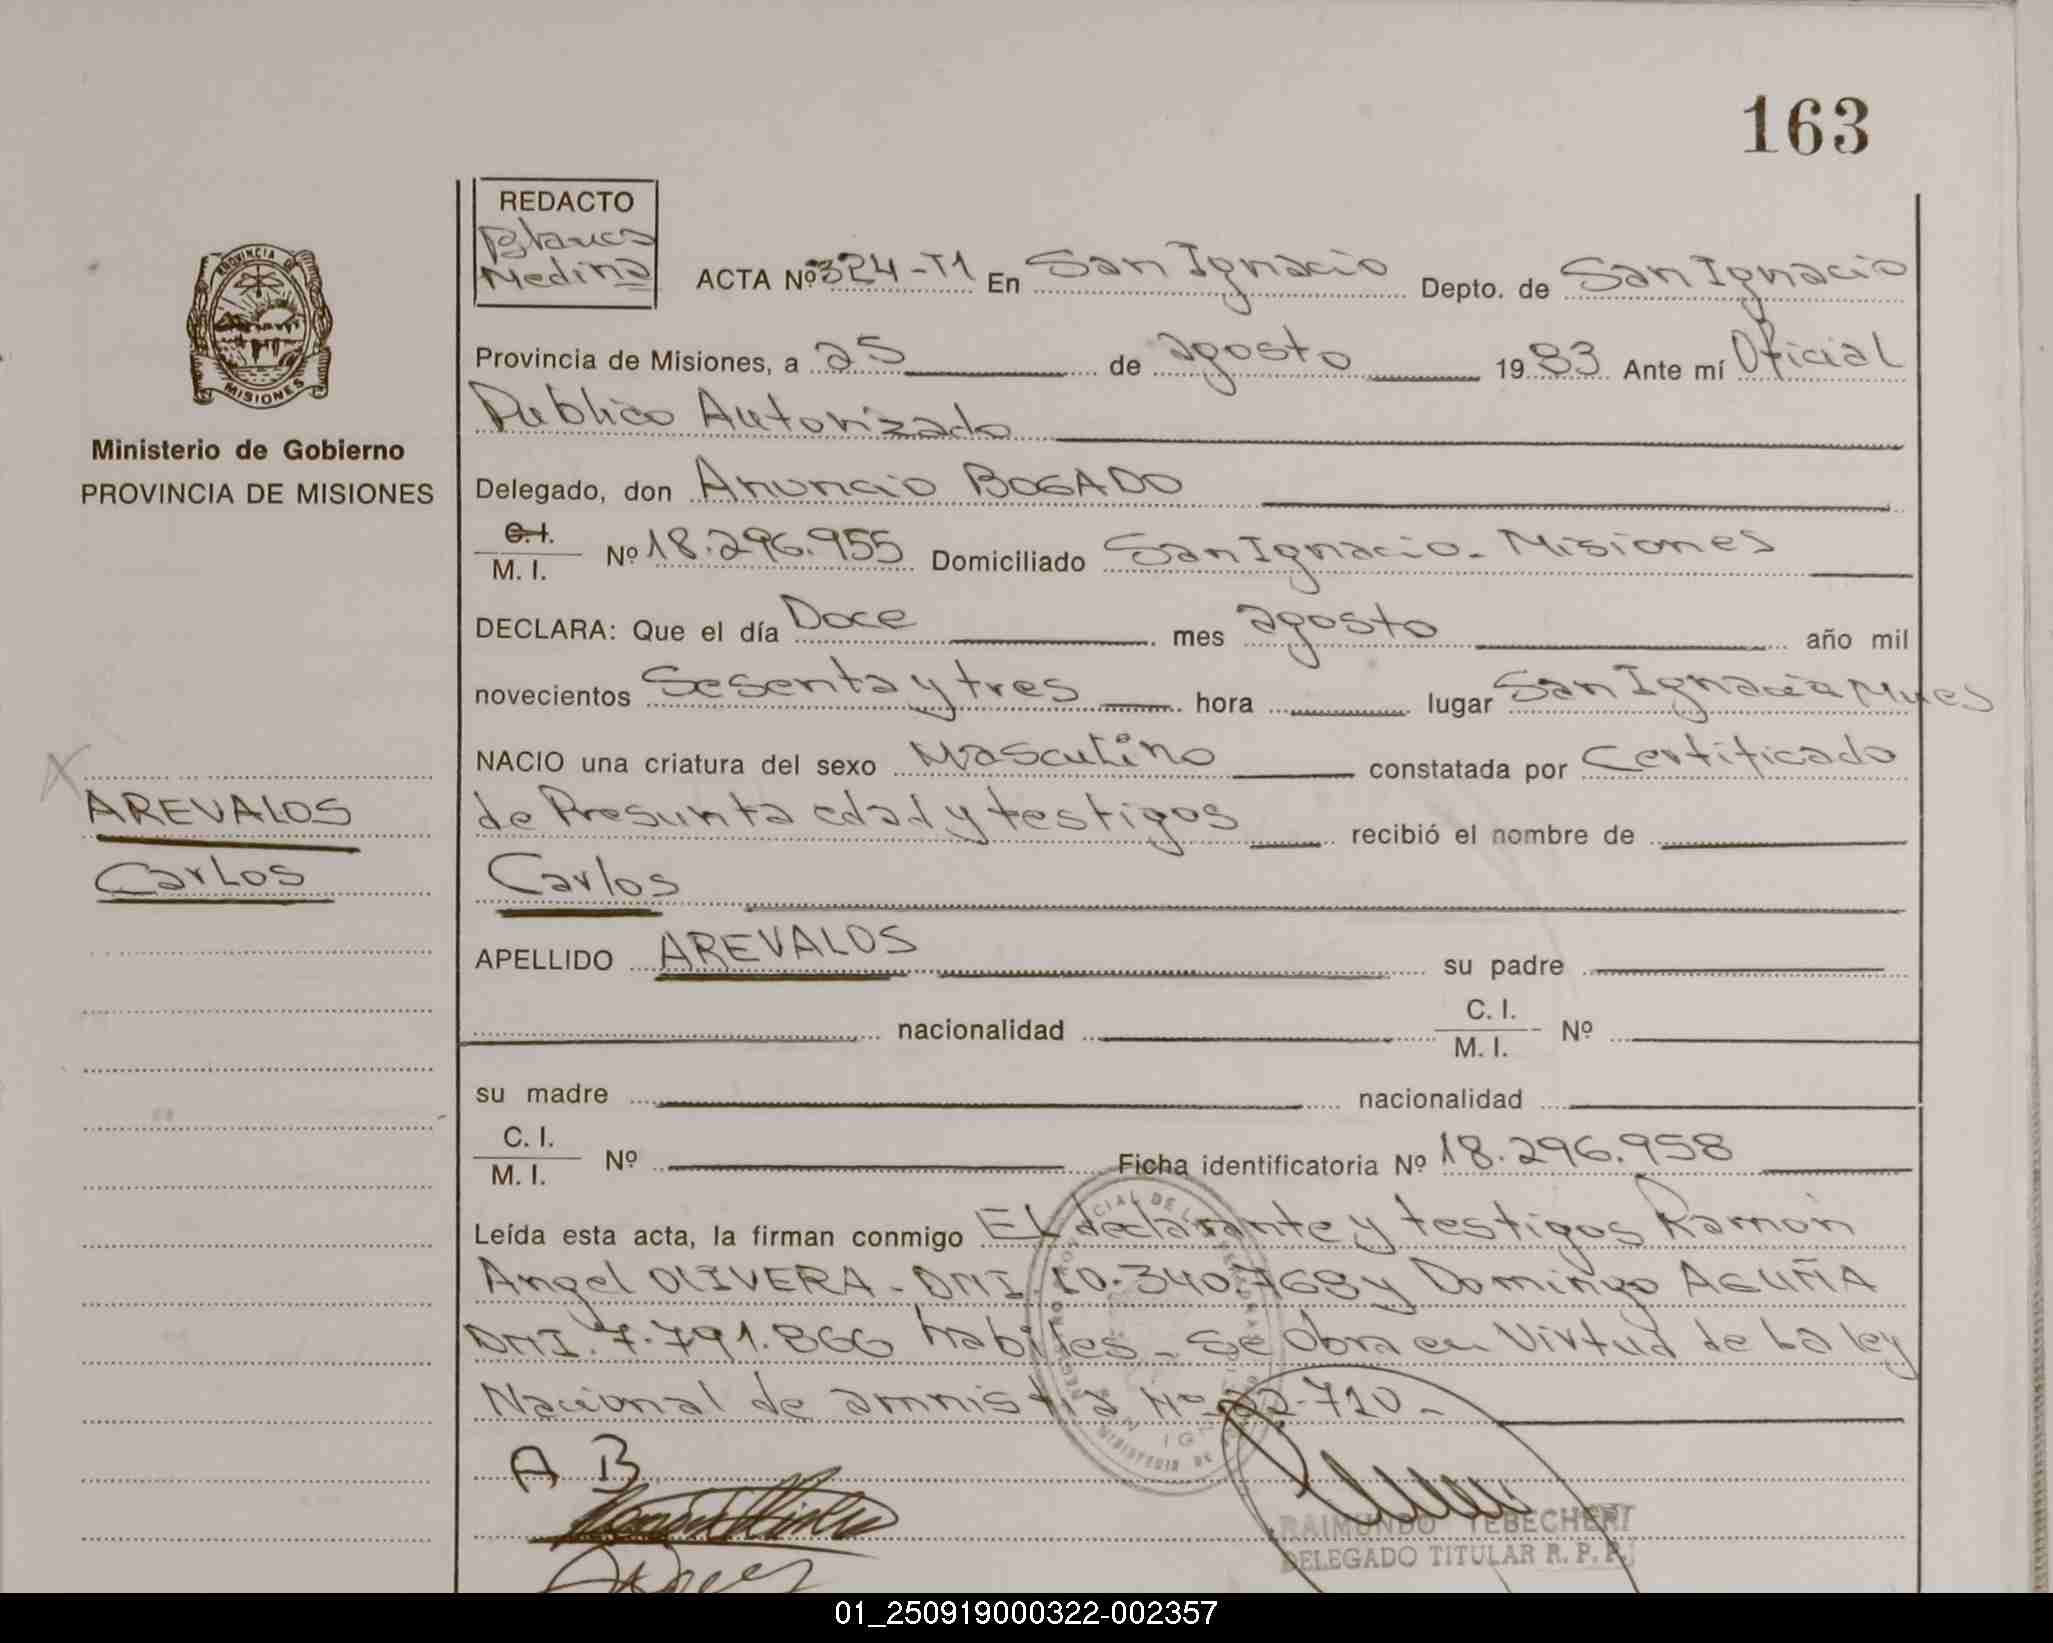 163
REDACTO
Blanca
Medina
ACTA Nº 324-T1 En San Ignacio Depto. de San Ignacio
PROVINCIA DE
MISIONES
Provincia de Misiones, a 25 de agosto 1983 Ante mí Oficial
Publico Autorizado
Ministerio de Gobierno
PROVINCIA DE MISIONES
Delegado, don Anuncio BOGADO
C.I.
M. I. Nº 18.296.955 Domiciliado San Ignacio - Misiones
DECLARA: Que el día Doce mes agosto año mil
novecientos Sesenta y tres hora lugar San Ignacio Mnes
NACIO una criatura del sexo Masculino constatada por Certificado
AREVALOS
de Presunta edad y testigos recibió el nombre de
Carlos
Carlos
APELLIDO AREVALOS su padre
nacionalidad C. I.
M. I. Nº
su madre nacionalidad
C. I.
M. I. Nº Ficha identificatoria Nº 18.296.958
Leída esta acta, la firman conmigo El declarante y testigos Ramón
Angel OLIVERA - DNI 10.340.768 y Domingo ACUÑA
DNI. 7.791.866 habiles - Se Obra en Virtud de La ley
Nacional de amnistia Nº 22-710.-
A B
RAIMUNDO TEBECHERI
DELEGADO TITULAR R. P. P.
01_250919000322-002357